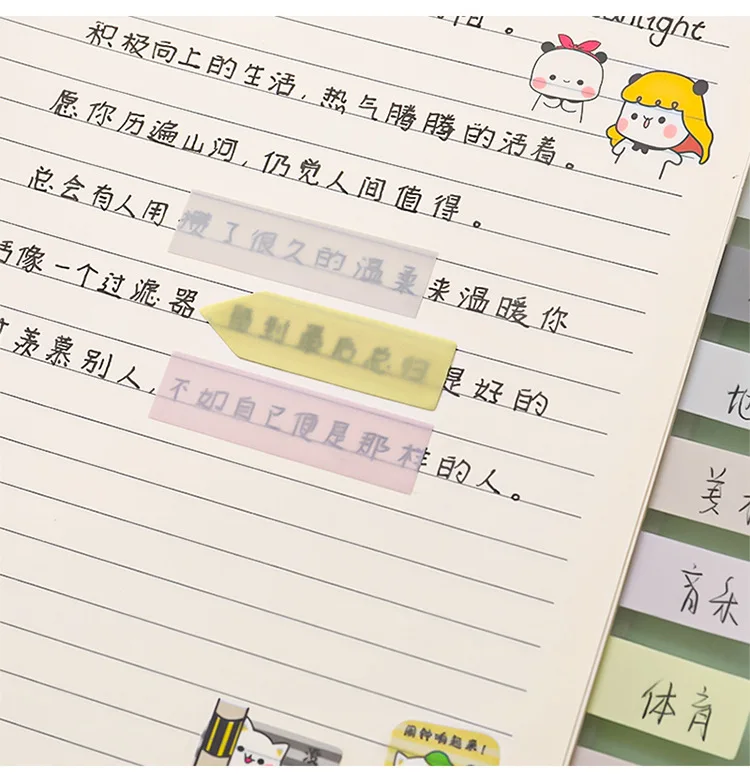 积极向上的生活，热气腾腾的活着。
愿你历遍山河，仍觉人间值得。
总会有人用攒了很久的温柔来温暖你
像一个过滤器留到最后总归是好的
羡慕别人，不如自己便是那样的人。
美
音乐
体育
闹钟响起来！
没